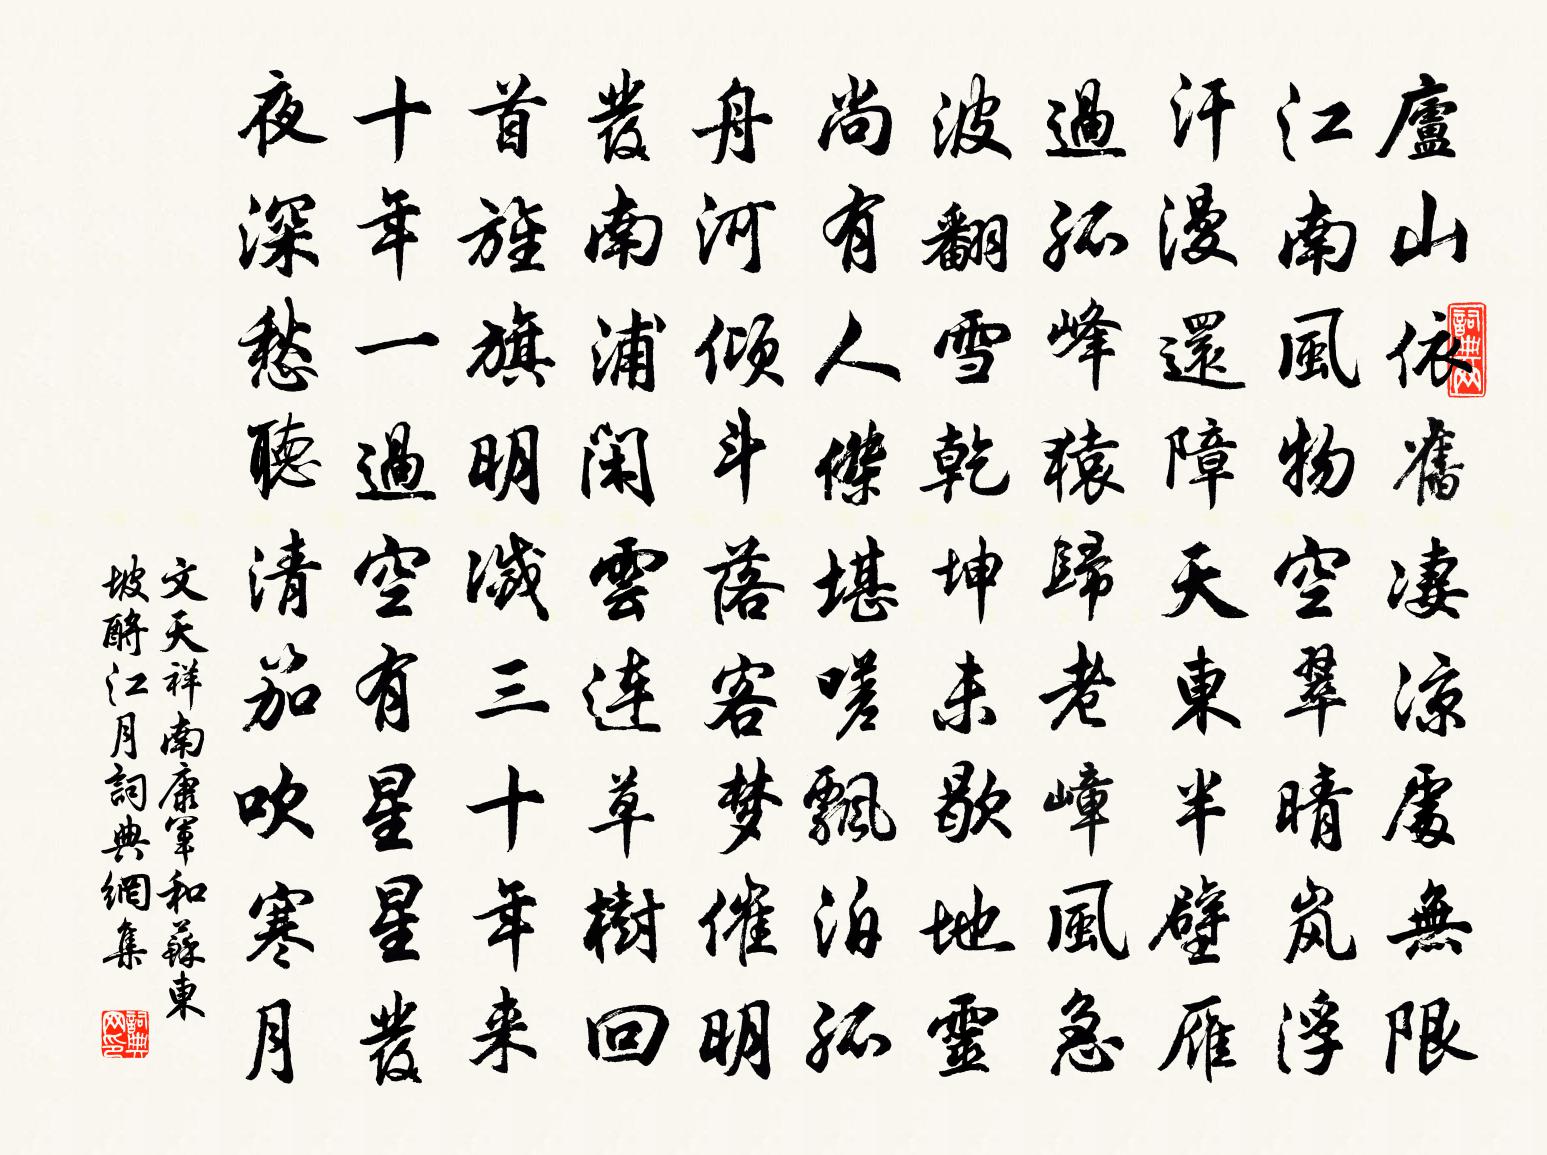 廬山依舊淒涼處無限
江南風物空翠晴岚浮
汗漫還障天東半壁雁
過孤峰猿歸老嶂風急
波翻雪乾坤未歇地靈
尚有人傑堪嗟飄泊孤
舟河倾斗落客梦催明
發南浦閑雲连草樹回
首旌旗明滅三十年来
十年一過空有星星發
夜深愁聽清笳吹寒月
文天祥南康軍和蘇東
坡酹江月詞典網集
詞典网
詞典网印